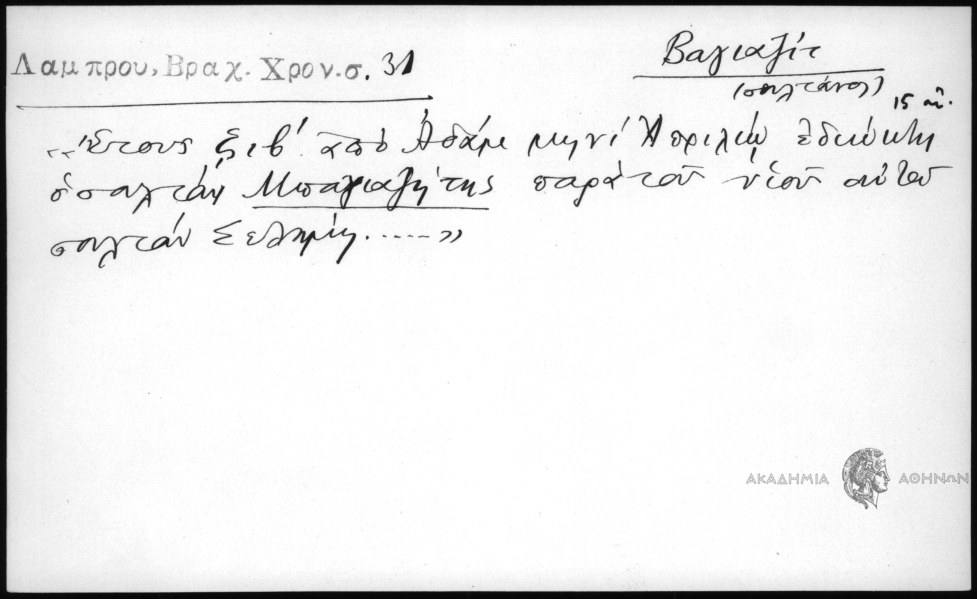 Λαμπρου, Βραχ. Χρον. σ. 31
Βαγιαζίτ
(σουλτάνος)
15 αἰ.
«ἔτους ζιβ΄ ἀπὸ Ἀδάμ μηνὶ Ἀπριλίῳ ἐδιώχθη
ὁ σουλτάν Μπαγιαζήτης παρὰ τοῦ υἱοῦ αὐτοῦ
σουλτάν Σελήμη.....»
ΑΚΑΔΗΜΙΑ ΑΘΗΝΩΝ